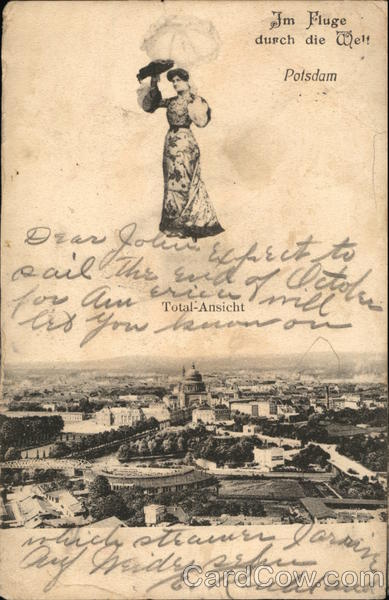 Im Fluge
durch die Welt
Potsdam
Dear John, Expect to
sail the end of October
for America will
Total-Ansicht
let you know on
which steamer
Auf Wiedersehn
CardCow.com